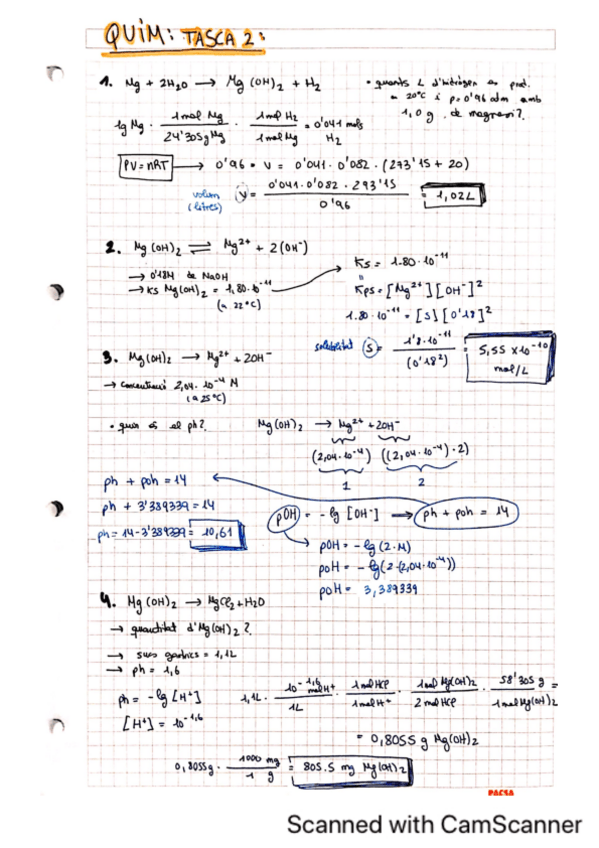 QUIM: TASCA 2:
1. Mg + 2H2O → Mg(OH)2 + H2
• quants L d'hidrògen es prod.
a 20°C i p=0'96 atm amb
1,0 g. de magnesi?
1g Mg · 1mol Mg / 24'305g Mg · 1mol H2 / 1mol Mg = 0'041 mols H2
PV=nRT → 0'96 · V = 0'041 · 0'082 · (273'15 + 20)
volum (litres) V = 0'041 · 0'082 · 293'15 / 0'96 = 1,02L
2. Mg(OH)2 ⇌ Mg2+ + 2(OH-)
→ 0'18M de NaOH
→ Ks Mg(OH)2 = 1,80·10-11
(a 22°C)
Ks = 1.80·10-11
"
Kps = [Mg2+][OH-]2
1.80·10-11 = [S][0'18]2
solubilitat S = 1'8·10-11 / (0'18²) = 5,55 x10-10 mol/L
3. Mg(OH)2 → Mg2+ + 2OH-
→ concentració 2,04·10-4 M
(a 25°C)
• quin és el ph?
Mg(OH)2 → Mg2+ + 2OH-
(2,04·10-4) ((2,04·10-4)·2)
1 2
ph + poh = 14
ph + 3'389339 = 14
ph = 14-3'389339 = 10,61
pOH = -lg [OH-] → ph + poh = 14
pOH = -lg(2·M)
pOH = -lg(2·(2,04·10-4))
poH = 3,389339
4. Mg(OH)2 → MgCl2 + H2O
→ quantitat d'Mg(OH)2?
→ sucs gàstrics = 1,1L
→ ph = 1,6
ph = -lg [H+]
[H+] = 10-1,6
1,1L · 10-1,6 mol H+ / 1L · 1mol HCl / 1mol H+ · 1mol Mg(OH)2 / 2mol HCl · 58'305 g / 1mol Mg(OH)2 =
= 0,8055 g Mg(OH)2
0,8055g · 1000 mg / 1 g = 805.5 mg Mg(OH)2
PACSA
Scanned with CamScanner